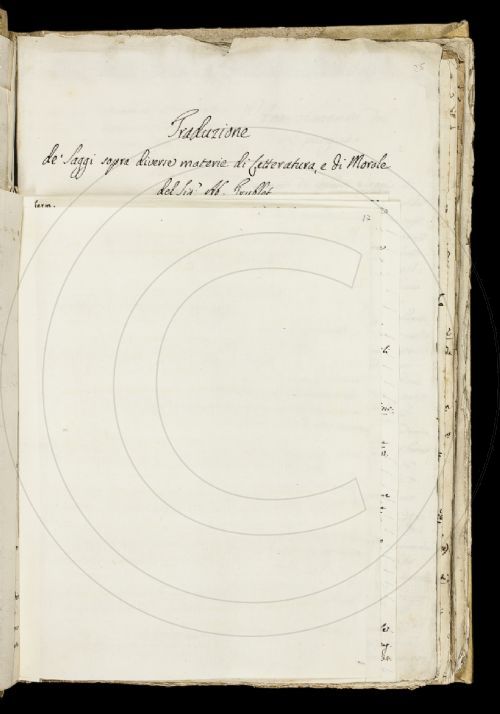 25
Traduzione
de' Saggi sopra diverse materie di Letteratura, e di Morale
del Sig.r Ab. Trublet
12